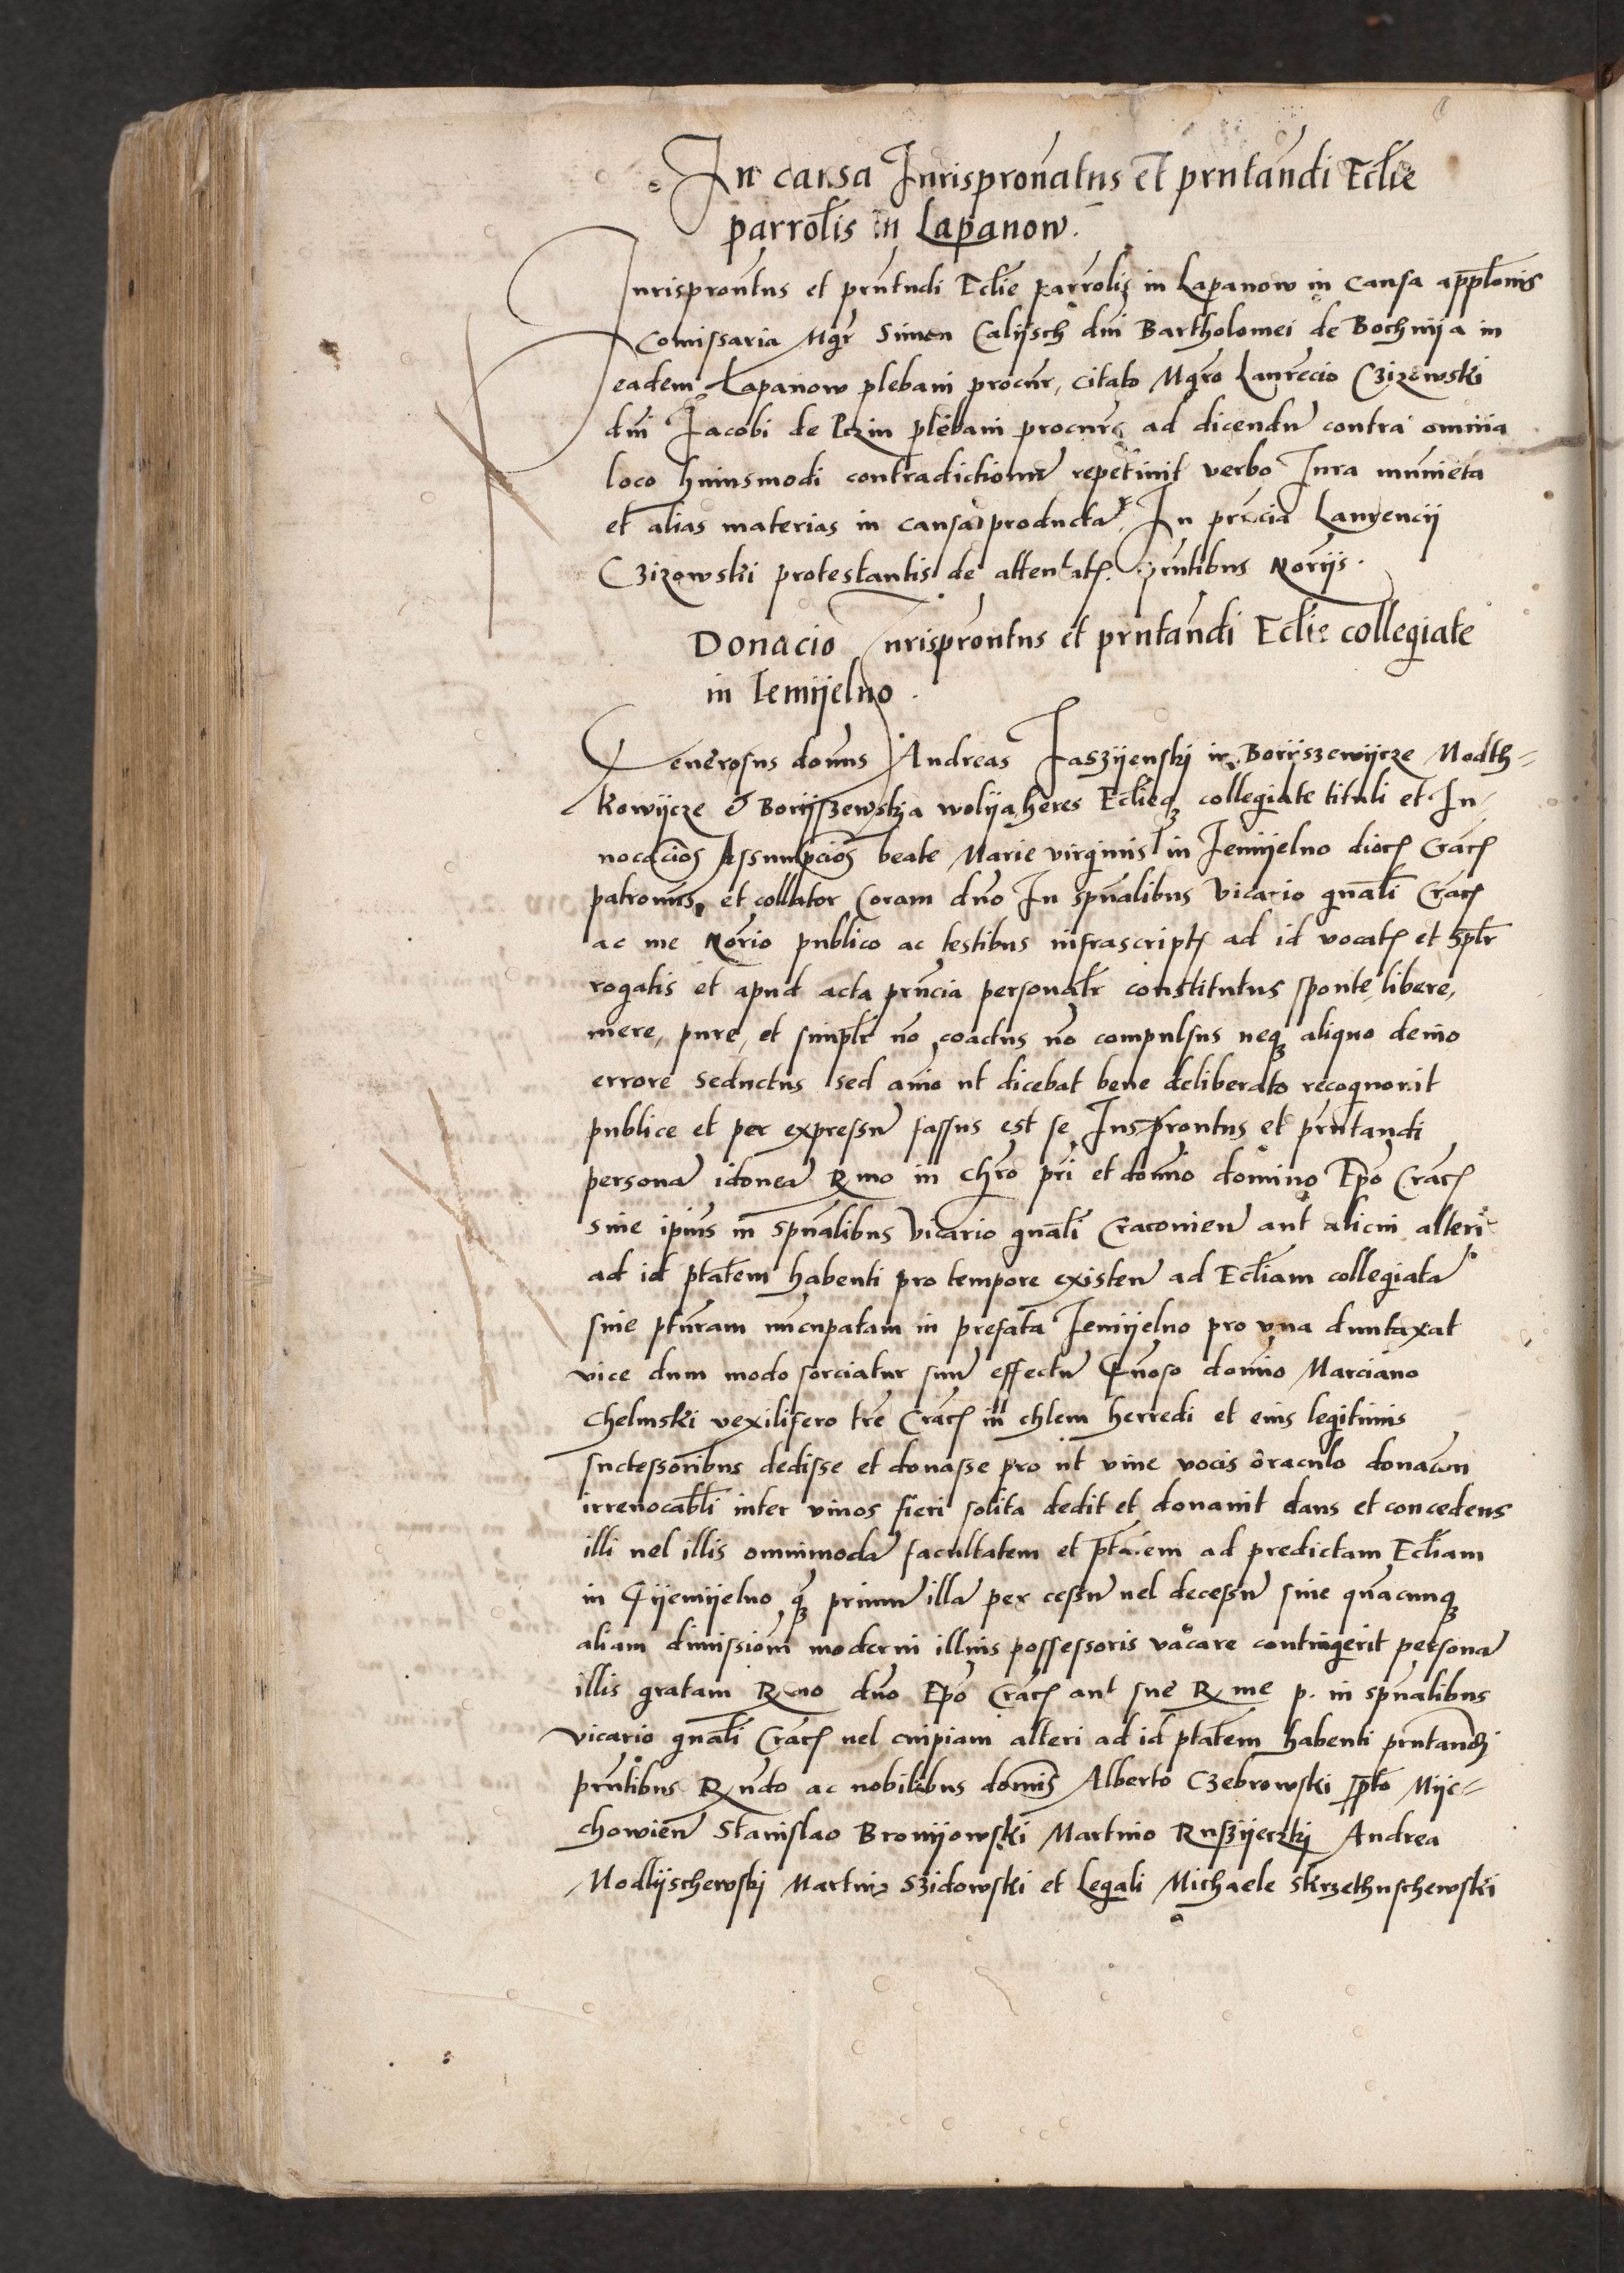 In causa Jurispronatus et prntandi Eclie
parrolis in Lapanow.
Jurisprontus et prntndi Eclie parrolis in Lapanow in causa applonis
Comissaria Mgr Simon Calijsch dni Bartholomei de Bochnija in
eadem Lapanow plebani procur, citato Mgro Laurecio Czizowski
dni Jacobi de Pczin plebani procurs ad dicendu contra omnia
loco huiusmodi contradictionu repetiuit verbo Jura munieta
et alias materias in causa producta, In prncia Laurencij
Czizowski protestantis de attentat. prntibus Norijs.
Donacio Jurisprontus et prntandi Eclie collegiate
in Jemijelno.
Generosus domns Andreas Jaszijenskj in Borijszewijcze Modth=
kowijcze & Borijszewskja wolija heres Eclieq collegiate tituli et In-
uocacios Assumpcios beate Marie virginis in Jemijelno dioc Crac
patronus, et collator Coram dno In spualibus Vicario gnali Crac
ac me Norio publico ac testibus infrascript ad id vocat et spler
rogatis et apud acta prncia personalr constitutus sponte, libere,
mere, pure, et simplr no coactus no compulsus neq aliquo deuio
errore seductus sed aio ut dicebat bene deliberato recognouit
publice et per expressu fassus est se Jusprontus et prntandi
persona idonea Rmo in Chro pri et domino domino Epo Crac
siue ipius in Spualibus Vicario gnali Cracouien aut alicui alteri
ad id ptatem habenti pro tempore existen ad Ecliam collegiata
siue pturam nuncupatam in prefata Jemijelno pro vna duntaxat
vice dum modo sorciatur suu effectu Gnoso domino Marciano
Chelmski vexilifero tre Crac in chlem herredi et eius legitimis
suctessoribus dedisse et donasse pro ut viue vocis oraculo donacon
irreuocabli inter viuos fieri solita dedit et donauit dans et concedens
illi uel illis omnimoda facultatem et ptatem ad predictam Ecliam
in Gijemijelno q primu illa per cessu uel decessu siue quacunq
aliam dimissiom moderni illius possessoris vacare contingerit persona
illis gratam Rmo dno Epo Crac aut sue Rme p. in spualibus
Vicario gnali Crac uel cuipiam alteri ad id ptatem habenti prntandj
prntibus Rndo ac nobilibus domis Alberto Czebrowski ppto Mijc=
chowien Stanislao Bronijowski Martino Ruszijeczkj Andrea
Modlijschewskj Martino Szidowski et Legali Michaele Skrzethuschewski